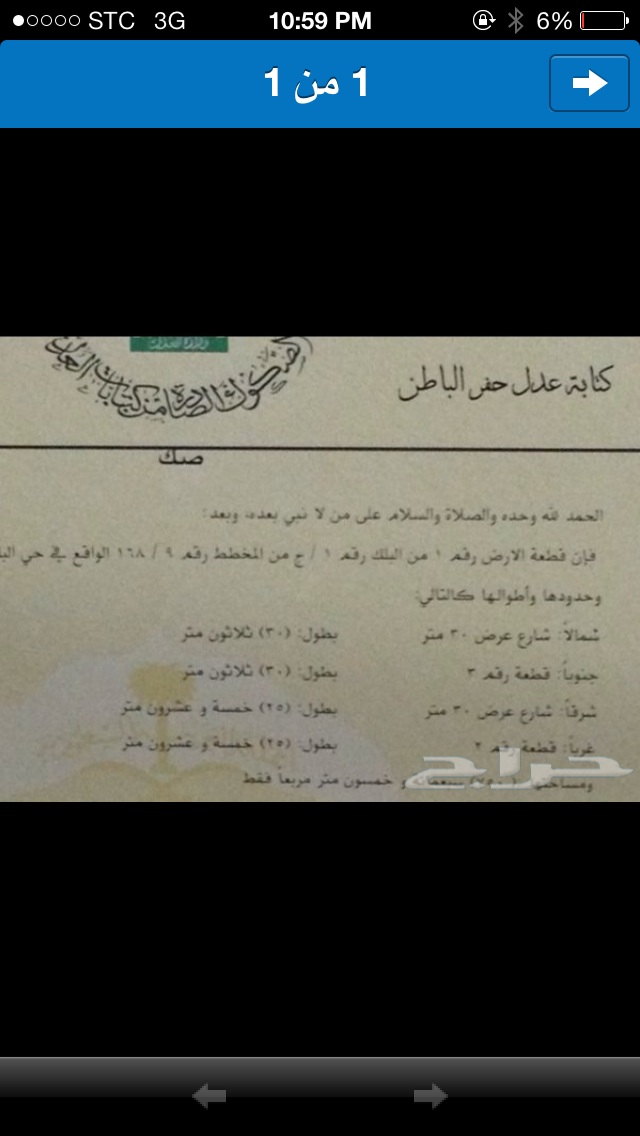 STC 3G 10:59 PM 6%
1 من 1
وزارة العدل
الصكوك الصادرة من كتابات العدل
كتابة عدل حفر الباطن
صك
الحمد لله وحده والصلاة والسلام على من لا نبي بعده، وبعد:
فإن قطعة الارض رقم ١ من البلك رقم ١ / ج من المخطط رقم ٩ / ١٦٨ الواقع في حي
وحدودها وأطوالها كالتالي:
شمالاً: شارع عرض ٣٠ متر بطول: (٣٠) ثلاثون متر
جنوباً: قطعة رقم ٣ بطول: (٣٠) ثلاثون متر
شرقاً: شارع عرض ٣٠ متر بطول: (٢٥) خمسة و عشرون متر
غرباً: قطعة رقم ٢ بطول: (٢٥) خمسة و عشرون متر
ومساحتها: (٧٥٠) سبعمائة و خمسون متر مربعاً فقط
حراج